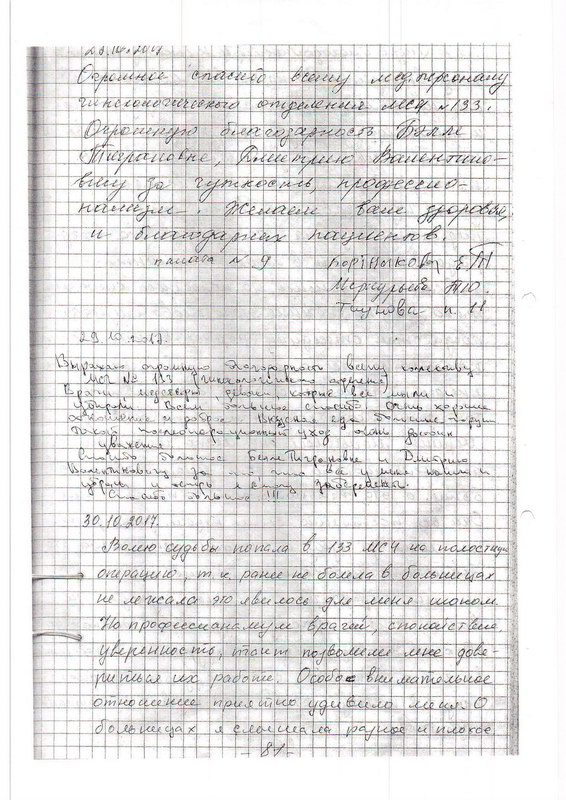 23.10.2017
Огромное спасибо всему мед.персоналу
гинекологического отделения МСЧ №133.
Огромную благодарность Бэлле
Тиграновне, Дмитрию Валентино-
вичу за чуткость, профессио-
нализм. Желаем вам здоровья,
и благодарных пациентов.
палата №9
Меркурьева
29.10.2017.
Выражаю огромную благодарность всему коллективу
МСЧ № 133 (гинекологического
Врачи все мыли и
убирали Всем большое спасибо. Очень хорошее
и добрая Вкусная еда.
послеоперационный уход очень
уважения.
Спасибо большое Белле Тиграновне и Дмитрию
Валентиновичу за то что все у меня нашли и
и теперь я
Спасибо большое !!!
30.10.2017.
Волею судьбы попала в 133 МСЧ на полостную
операцию, т.к. ранее не болела в больницах
не лежала это явилось для меня шоком.
Но профессионализм врачей, спокойствие,
уверенность, такт позволили мне дове-
риться их работе. Особое внимательное
отношение приятно удивило меня. О
больницах я слышала разное и плохое
- 81 -